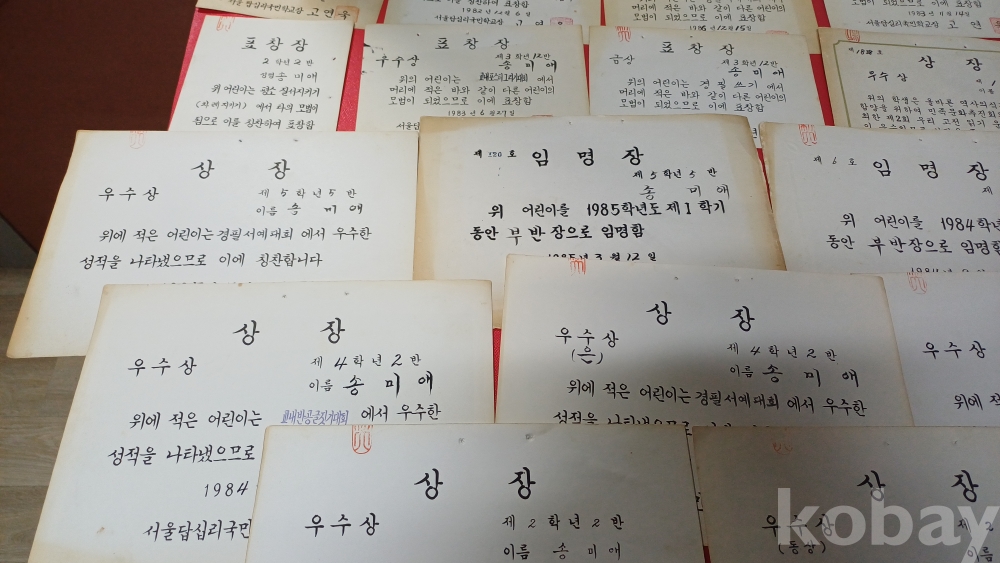 서울답십리국민학교장 고연욱
1982년 12월 6일
서울답십리국민학교장
머리에 적은 바와 같이 다른 어린이의
모범이 되었으므로 이에 표창함
1983년 11월 14일
표창장
2학년 2반
송미애
위 어린이는
에서 타의 모범이
됨으로 이를 상찬하여 표창함
표창장
우수상
제3학년 12반
송미애
위의 어린이는 에서
머리에 적은 바와 같이 다른 어린이의
모범이 되었으므로 이에 표창함
1983년 6월 27일
서울답
표창장
금상
제3학년 12반
송미애
위의 어린이는 경필쓰기 에서
머리에 적은 바와 같이 다른 어린이의
모범이 되었으므로 이에 표창함
상장
우수상
제
이름
위의 학생은 올바른 역사의식
함양을 위하여 민족문화추진회
상장
우수상
제5학년5반
이름 송미애
위에 적은 어린이는 경필서예대회 에서 우수한
성적을 나타냈으므로 이에 칭찬합니다
제 320 호
임명장
제5학년 5반
송미애
위 어린이를 1985학년도 제1학기
동안 부반장으로 임명함
1985년 3월 12일
제 6 호
임명장
제
위 어린이를 1984학년
동안 부반장으로 임명함
상장
우수상
제4학년2반
이름 송미애
위에 적은 어린이는 교내반공글짓기대회 에서 우수한
성적을 나타냈으므로
1984
서울답십리국민
상장
우수상
(은)
제4학년2반
이름 송미애
위에 적은 어린이는 경필서예대회 에서 우수한
성적을 나타냈으므로
상
우수상
위에 적
성적을
상장
우수상
제2학년2반
이름 송미애
상장
우수상
(동상)
제2
이름
kobay